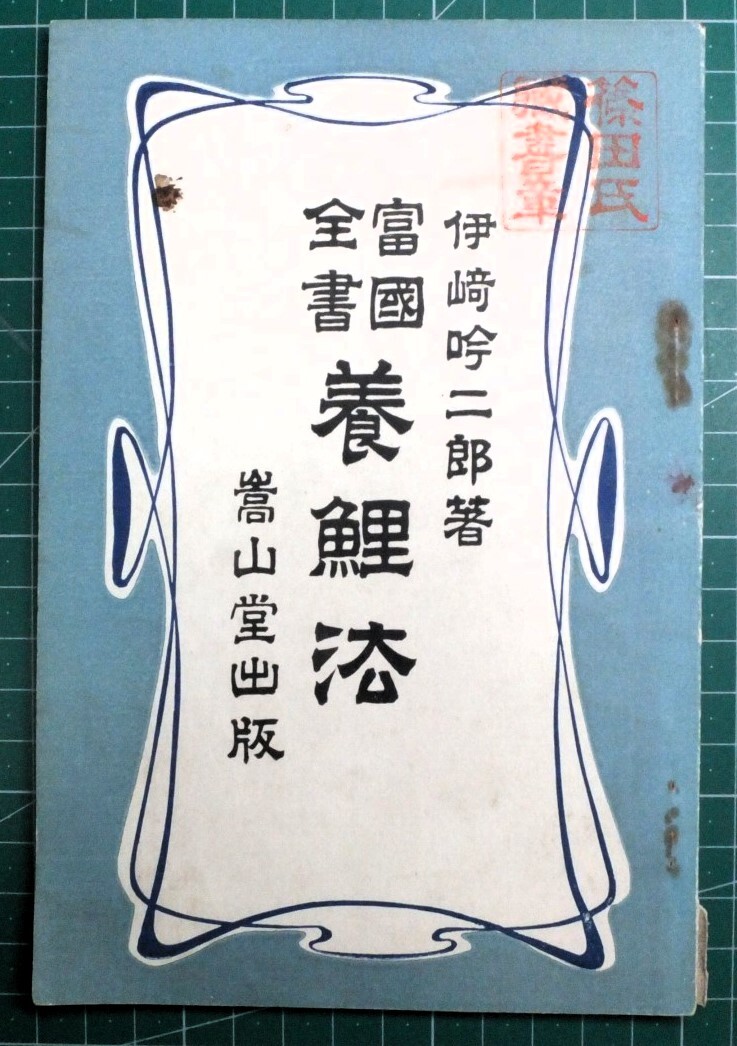 篠田氏
藏書章
伊﨑吟二郎著
富國
全書
養鯉法
嵩山堂出版